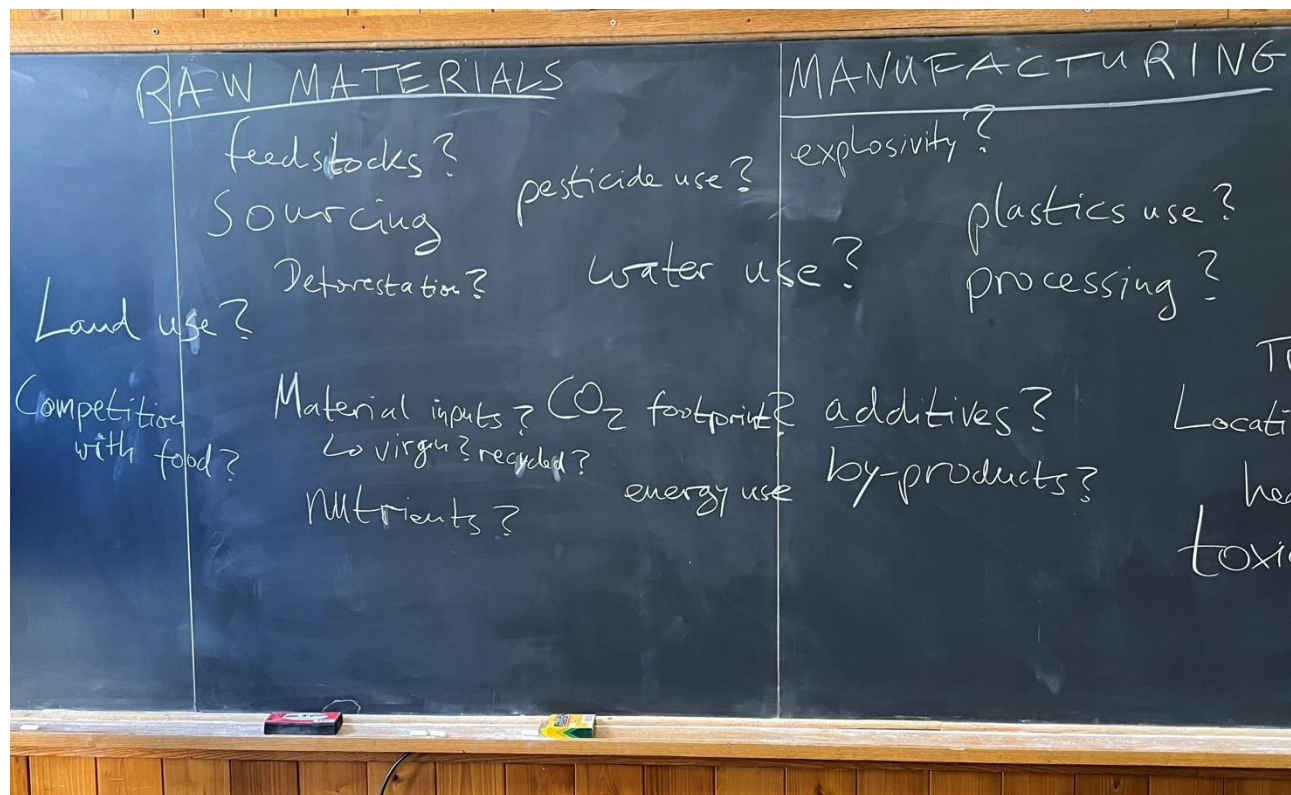 RAW MATERIALS
feedstocks?
Sourcing
pesticide use?
Deforestation?
water use?
Land use?
Competition
with food?
Material inputs?
↳ virgin? recycled?
CO₂ footprint?
nutrients?
energy use
MANUFACTURING
explosivity?
plastics use?
processing?
additives?
by-products?